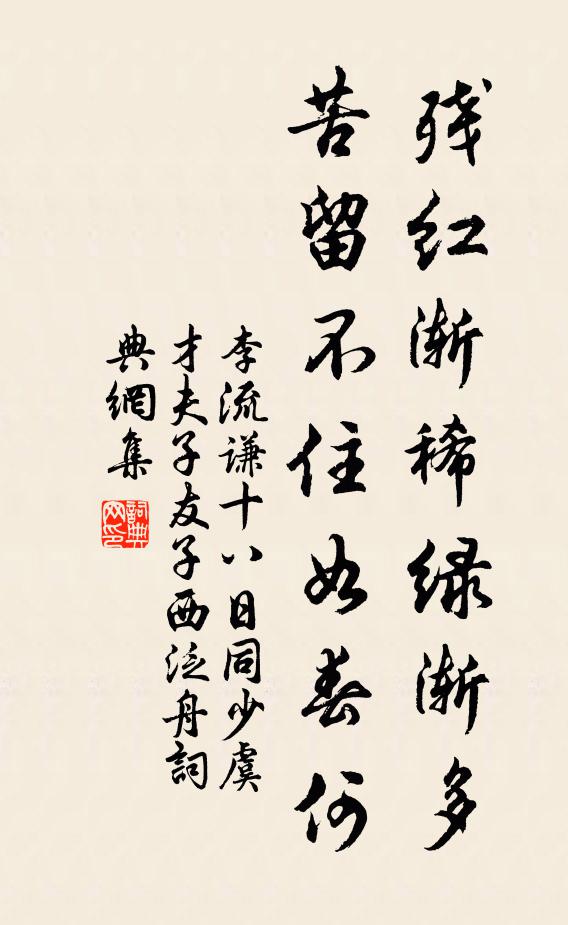 残红渐稀绿渐多
苦留不住如春何
李流谦十八日同少虞
才夫子友子西泛舟詞
典網集
詞典网印